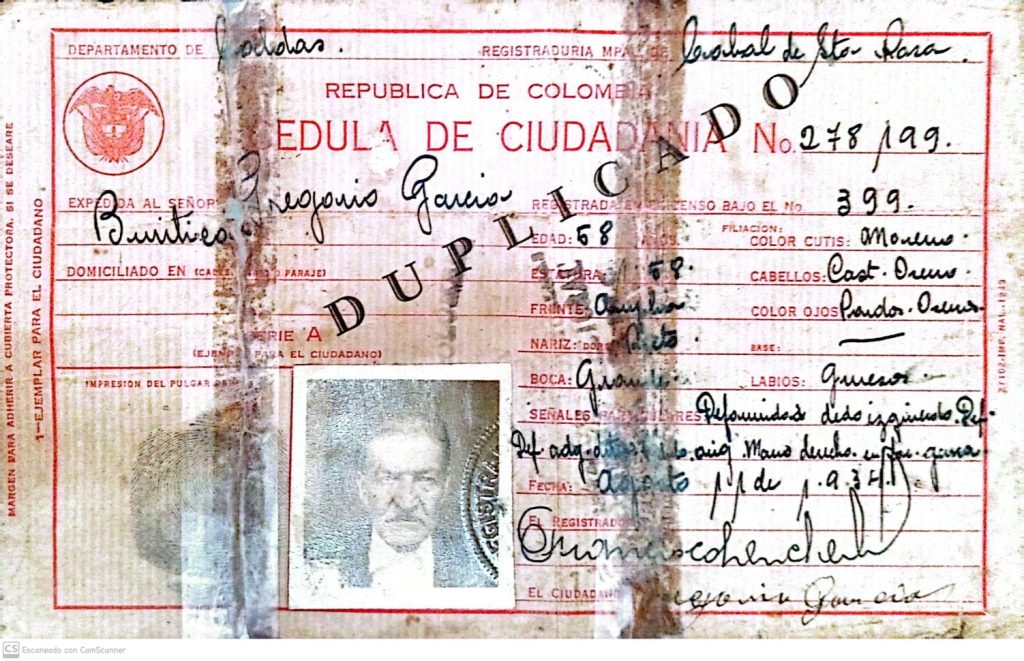 DEPARTAMENTO DE Caldas. REGISTRADURIA MPAL DE Cabal de Sta Rosa
REPUBLICA DE COLOMBIA
CEDULA DE CIUDADANIA No. 278199.
DUPLICADO
EXPEDIDA AL SEÑOR Gregorio Garcia
Buriticá
REGISTRADA EN EL CENSO BAJO EL No 399.
EDAD: 58 AÑOS. FILIACION: COLOR CUTIS: Moreno.
DOMICILIADO EN (CALLE, BARRIO O PARAJE)
ESTATURA: 58. CABELLOS: Cast. Oscuro.
FRENTE: Amplia COLOR OJOS: Pardos Oscuros
SERIE A
(EJEMPLAR PARA EL CIUDADANO)
NARIZ: DORSO: Recto BASE: —
IMPRESION DEL PULGAR
BOCA: Grande LABIOS: Gruesos.
SEÑALES PARTICULARES: Deformidad dedo izquierdo. Def.
Def. adq. Mano derecha
FECHA: Agosto 11 de 1.934
EL REGISTRADOR
EL CIUDADANO Gregorio Garcia
MARGEN PARA ADHERIR A CUBIERTA PROTECTORA, SI SE DESEARE
1-EJEMPLAR PARA EL CIUDADANO
IMP. NAL.
CS Escaneado con CamScanner